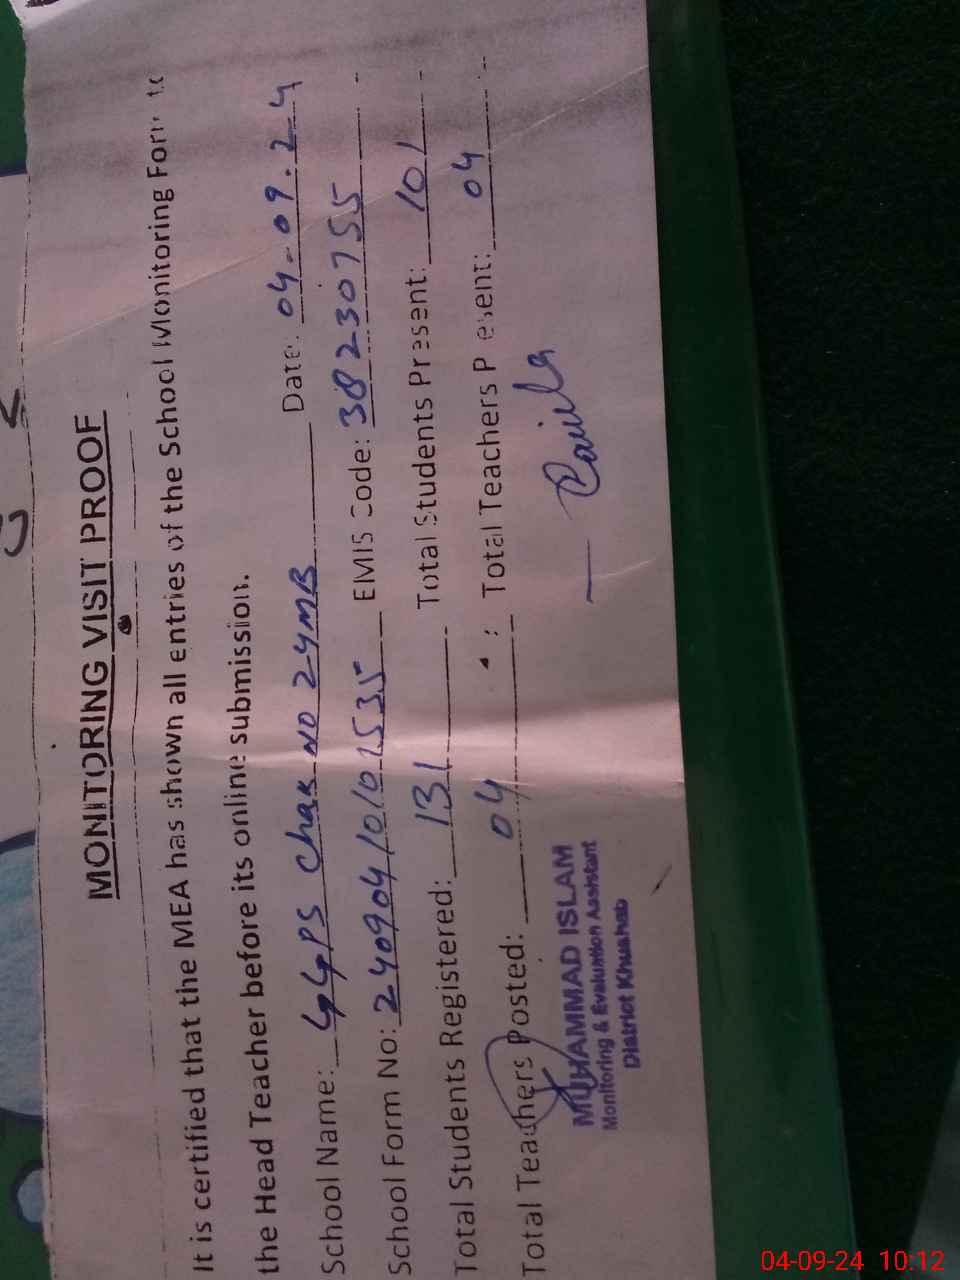 MONITORING VISIT PROOF
It is certified that the MEA has shown all entries of the School Monitoring Form to
the Head Teacher before its online submission.
School Name: GGPS Chak NO 24MB Date: 04-09.24
School Form No: 24090410101535 EMIS Code: 38230755
Total Students Registered: 131 Total Students Present: 101
Total Teachers Posted: 04 Total Teachers Present: 04
MUHAMMAD ISLAM
Monitoring & Evaluation Assistant
District Khushab
04-09-24 10:12